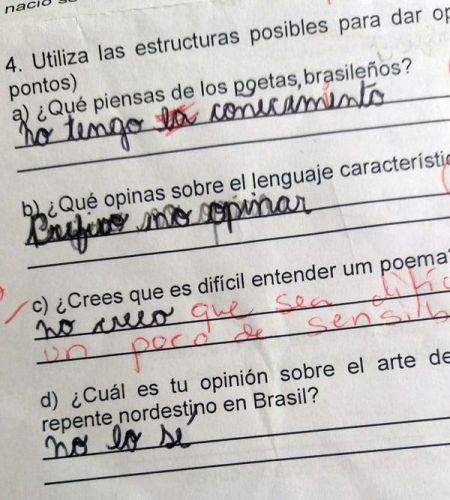 nació
4. Utiliza las estructuras posibles para dar op
pontos)
a) ¿Qué piensas de los poetas, brasileños?
no tengo conecamiento
b) ¿Qué opinas sobre el lenguaje característic
Prefiro no opinar
c) ¿Crees que es difícil entender um poema
no creo que sea difíc
un poco de sensib
d) ¿Cuál es tu opinión sobre el arte de
repente nordestino en Brasil?
no lo se